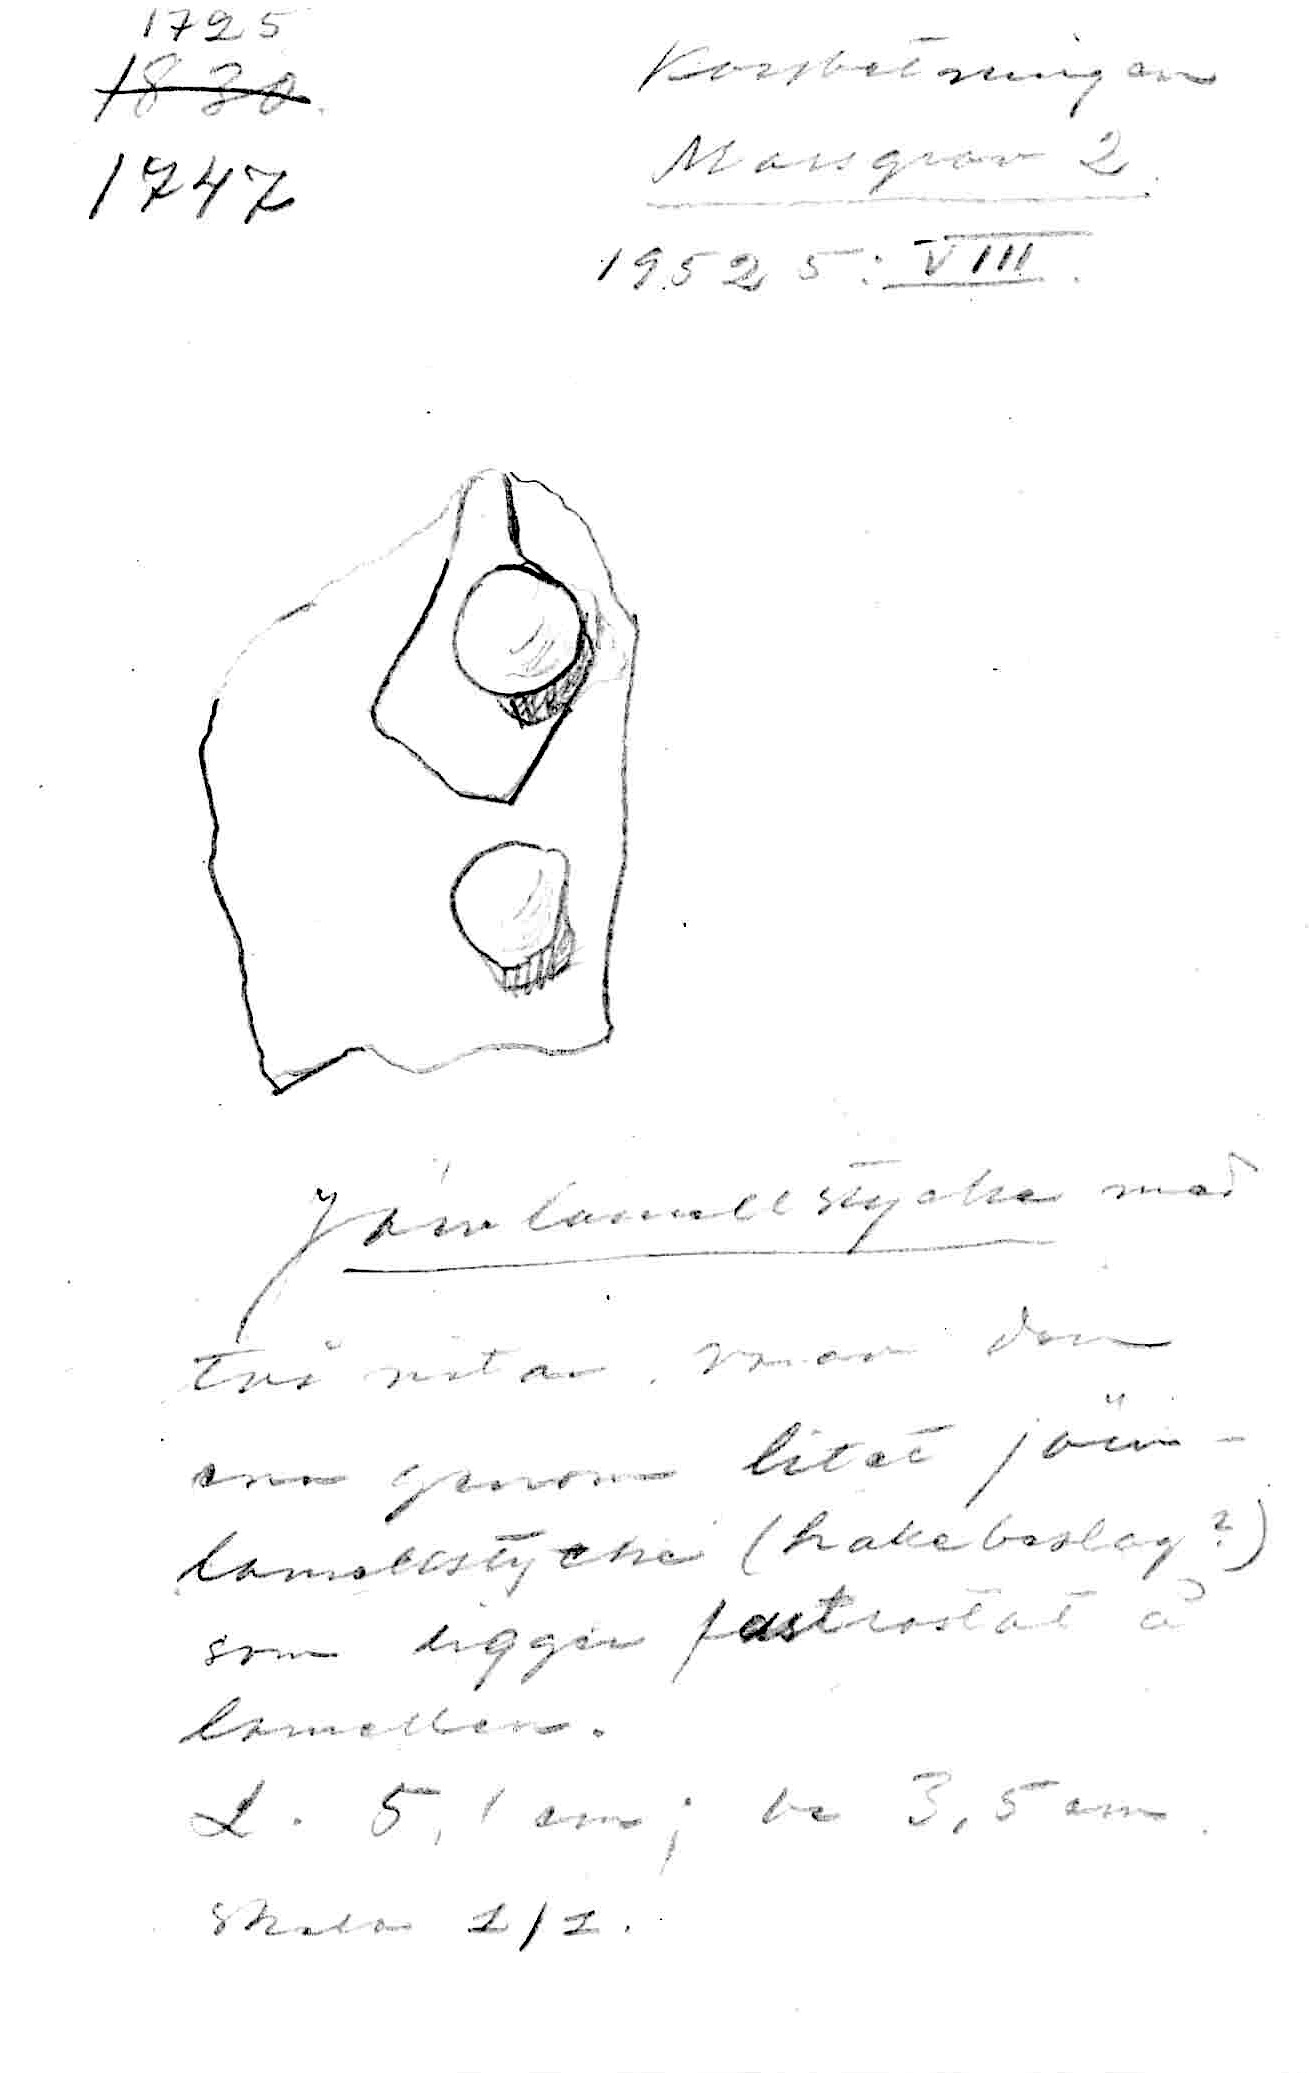 1725
1830.
1747
Korsbetningen
Massgrav 2.
19525: VIII.
Järnlamellstycke med
två nitar, varav den
ena genom litet järn-
lamellstycke (hakebeslag?)
som ligger fastrostat å
lamellen.
L. 5,1 cm; br 3,5 cm.
Skala 1/1.